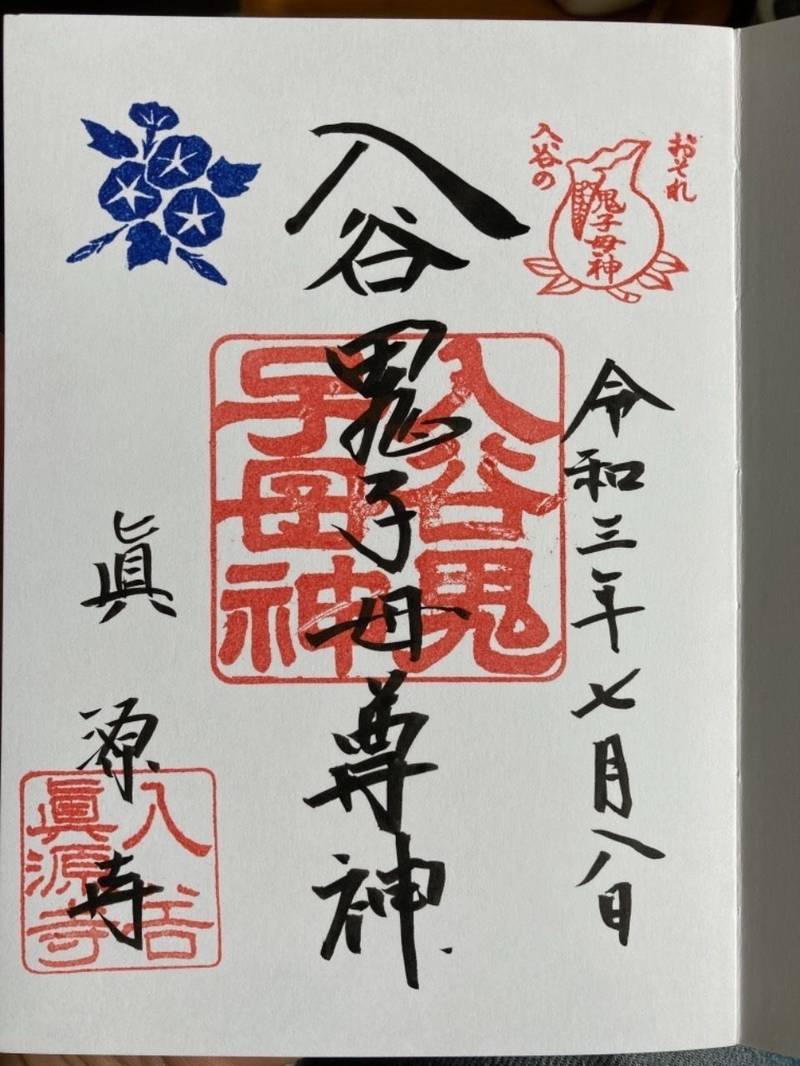 おそれ
鬼子母神
入谷の
令和三年七月八日
入谷鬼子母尊神
入谷鬼
子母神
眞源寺
入谷
眞源寺